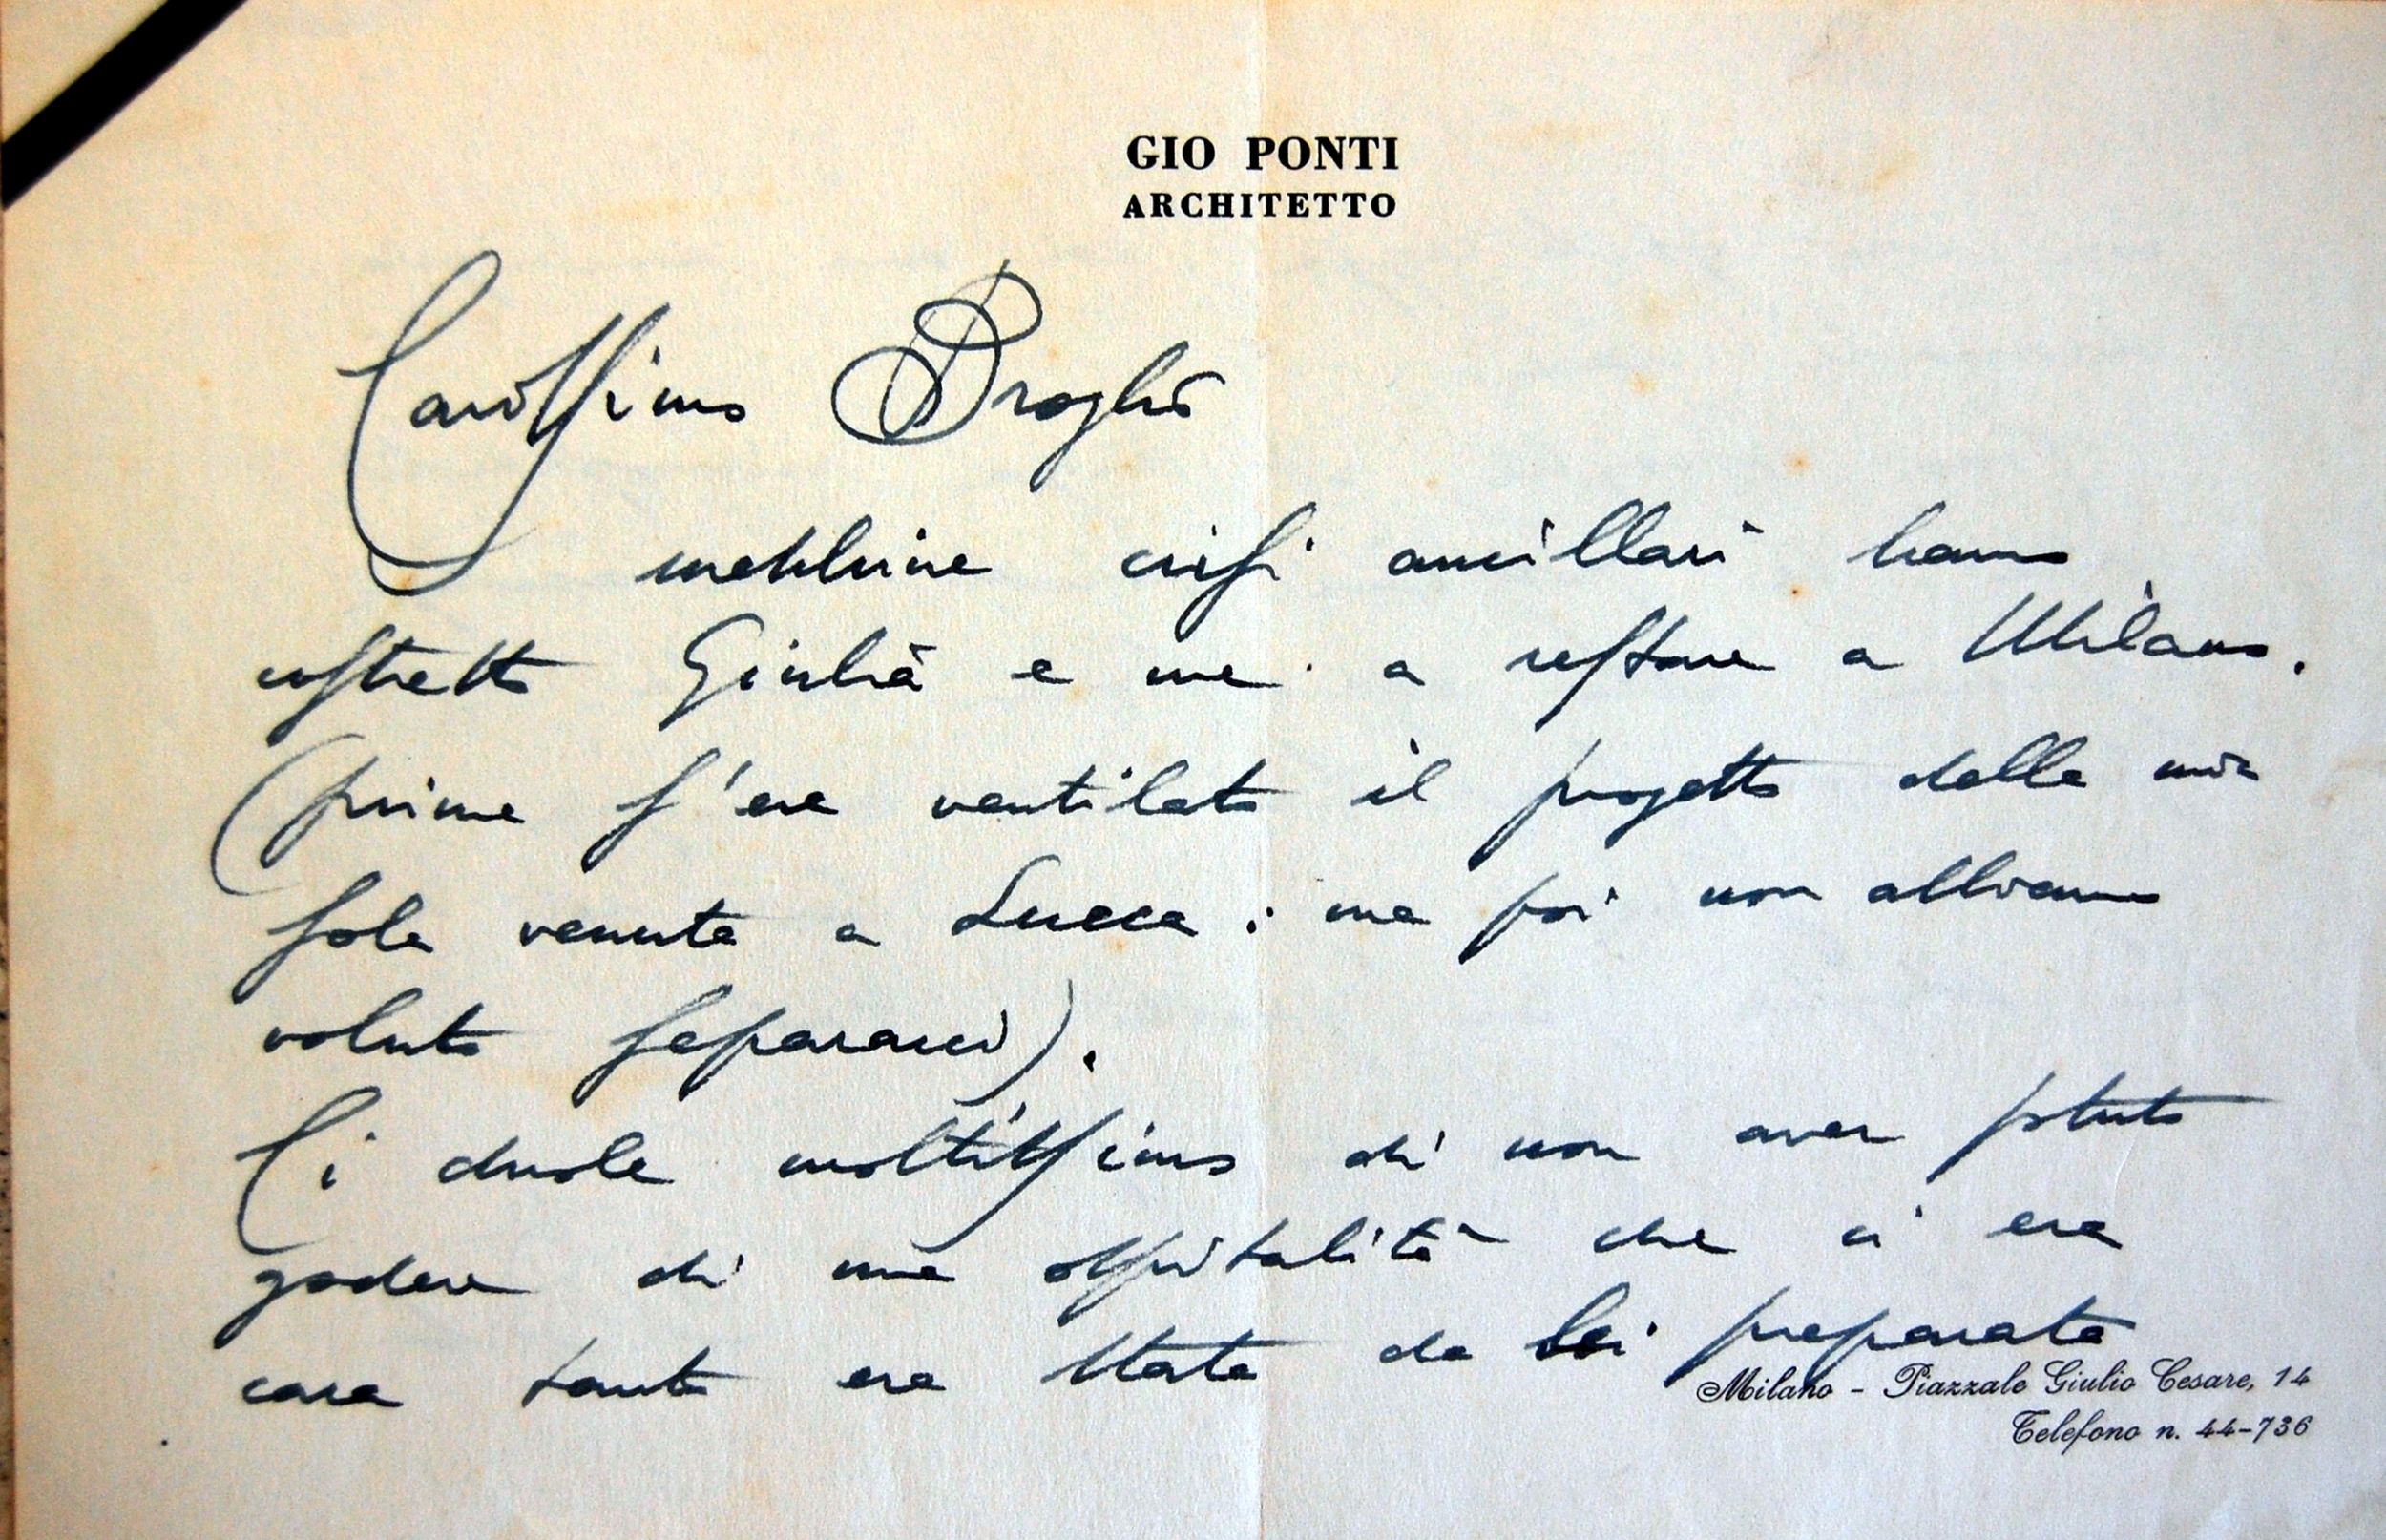 GIO PONTI
ARCHITETTO
Carissimo Broglio
meschine crisi ancillari hanno
costretto Giulia e me a restare a Milano.
(prima s'era ventilato il progetto della mia
sola venuta a Lucca: ma poi non abbiamo
voluto separarci).
Ci duole moltissimo di non aver potuto
godere di una ospitalità che ci era
cara tanto era stata da lei preparata
Milano - Piazzale Giulio Cesare, 14
Telefono n. 44-736